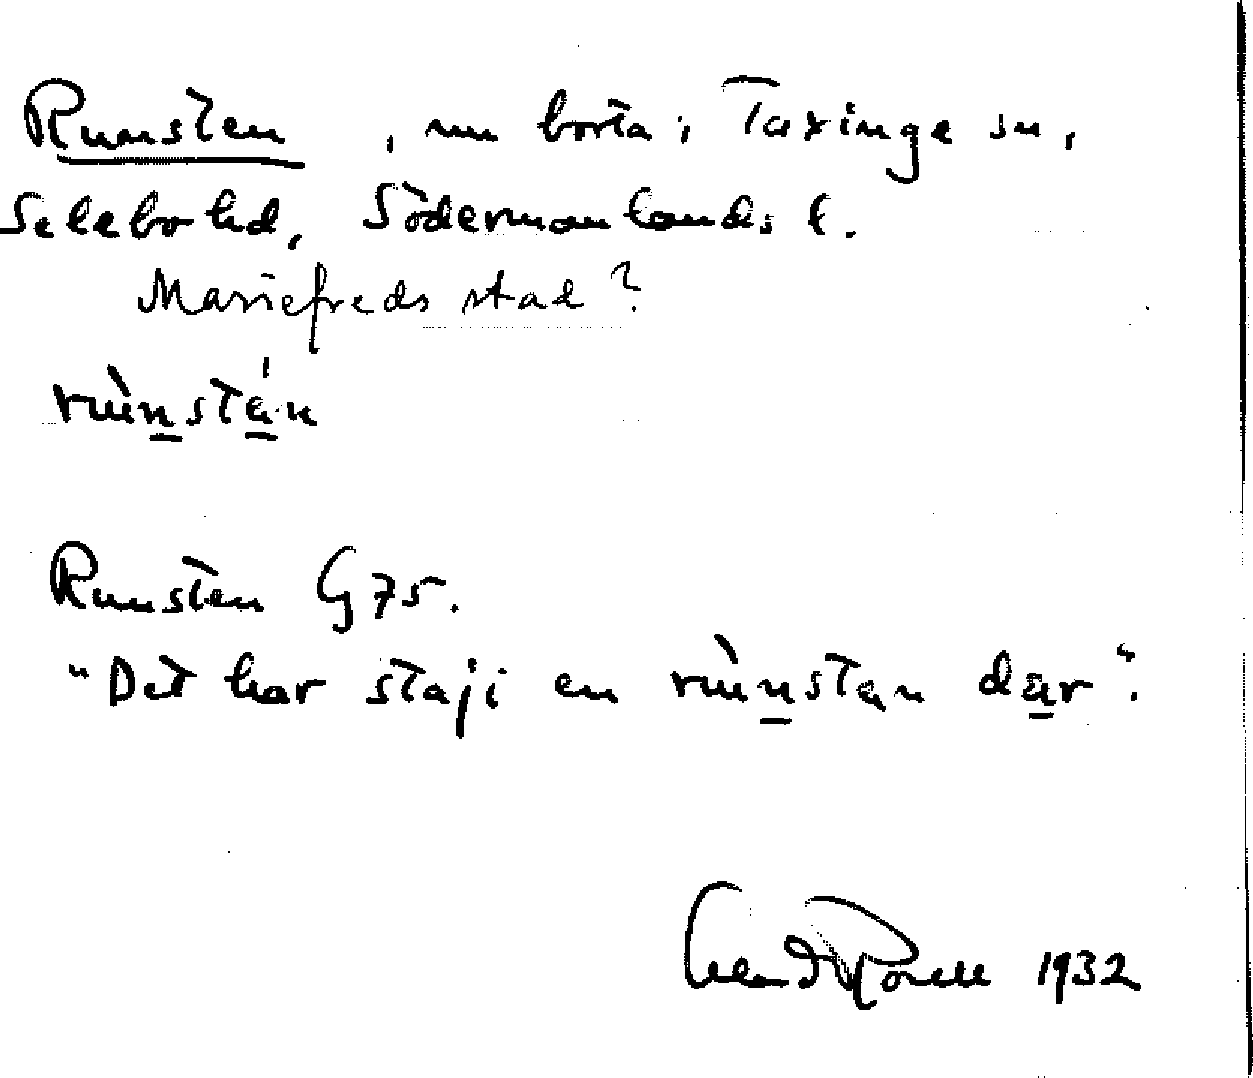 Runsten, nu borta i Taxinge sn,
Selebo hd, Södermanlands l.
Mariefreds stad?
rùn̲stä̲́n
Runsten G 75.
"Det har staji en rùn̲stän dä̲r".
1932